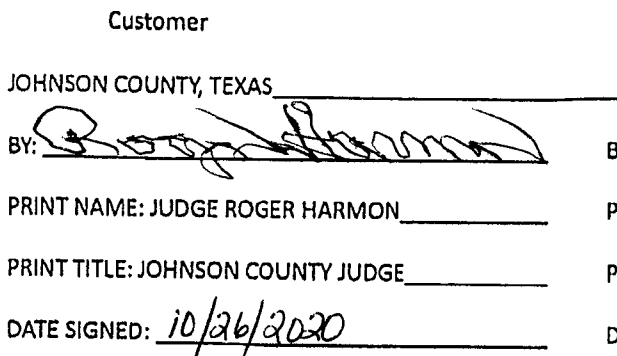 Customer
JOHNSON COUNTY, TEXAS
BY: Roger Harmon B
PRINT NAME: JUDGE ROGER HARMON P
PRINT TITLE: JOHNSON COUNTY JUDGE P
DATE SIGNED: 10/26/2020 D